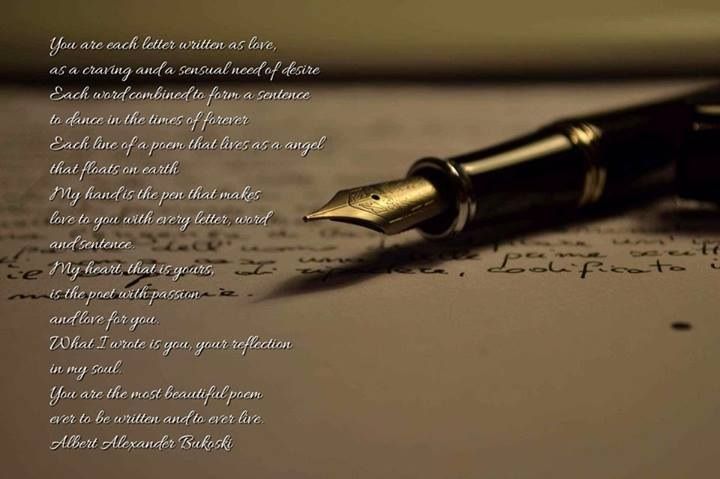 You are each letter written as love,
as a craving and a sensual need of desire
Each word combined to form a sentence
to dance in the times of forever
Each line of a poem that lives as a angel
that floats on earth
My hand is the pen that makes
love to you with every letter, word
and sentence.
My heart, that is yours,
is the poet with passion
and love for you.
What I wrote is you, your reflection
in my soul.
You are the most beautiful poem
ever to be written and to ever live.
Albert Alexander Bukoski
codificato